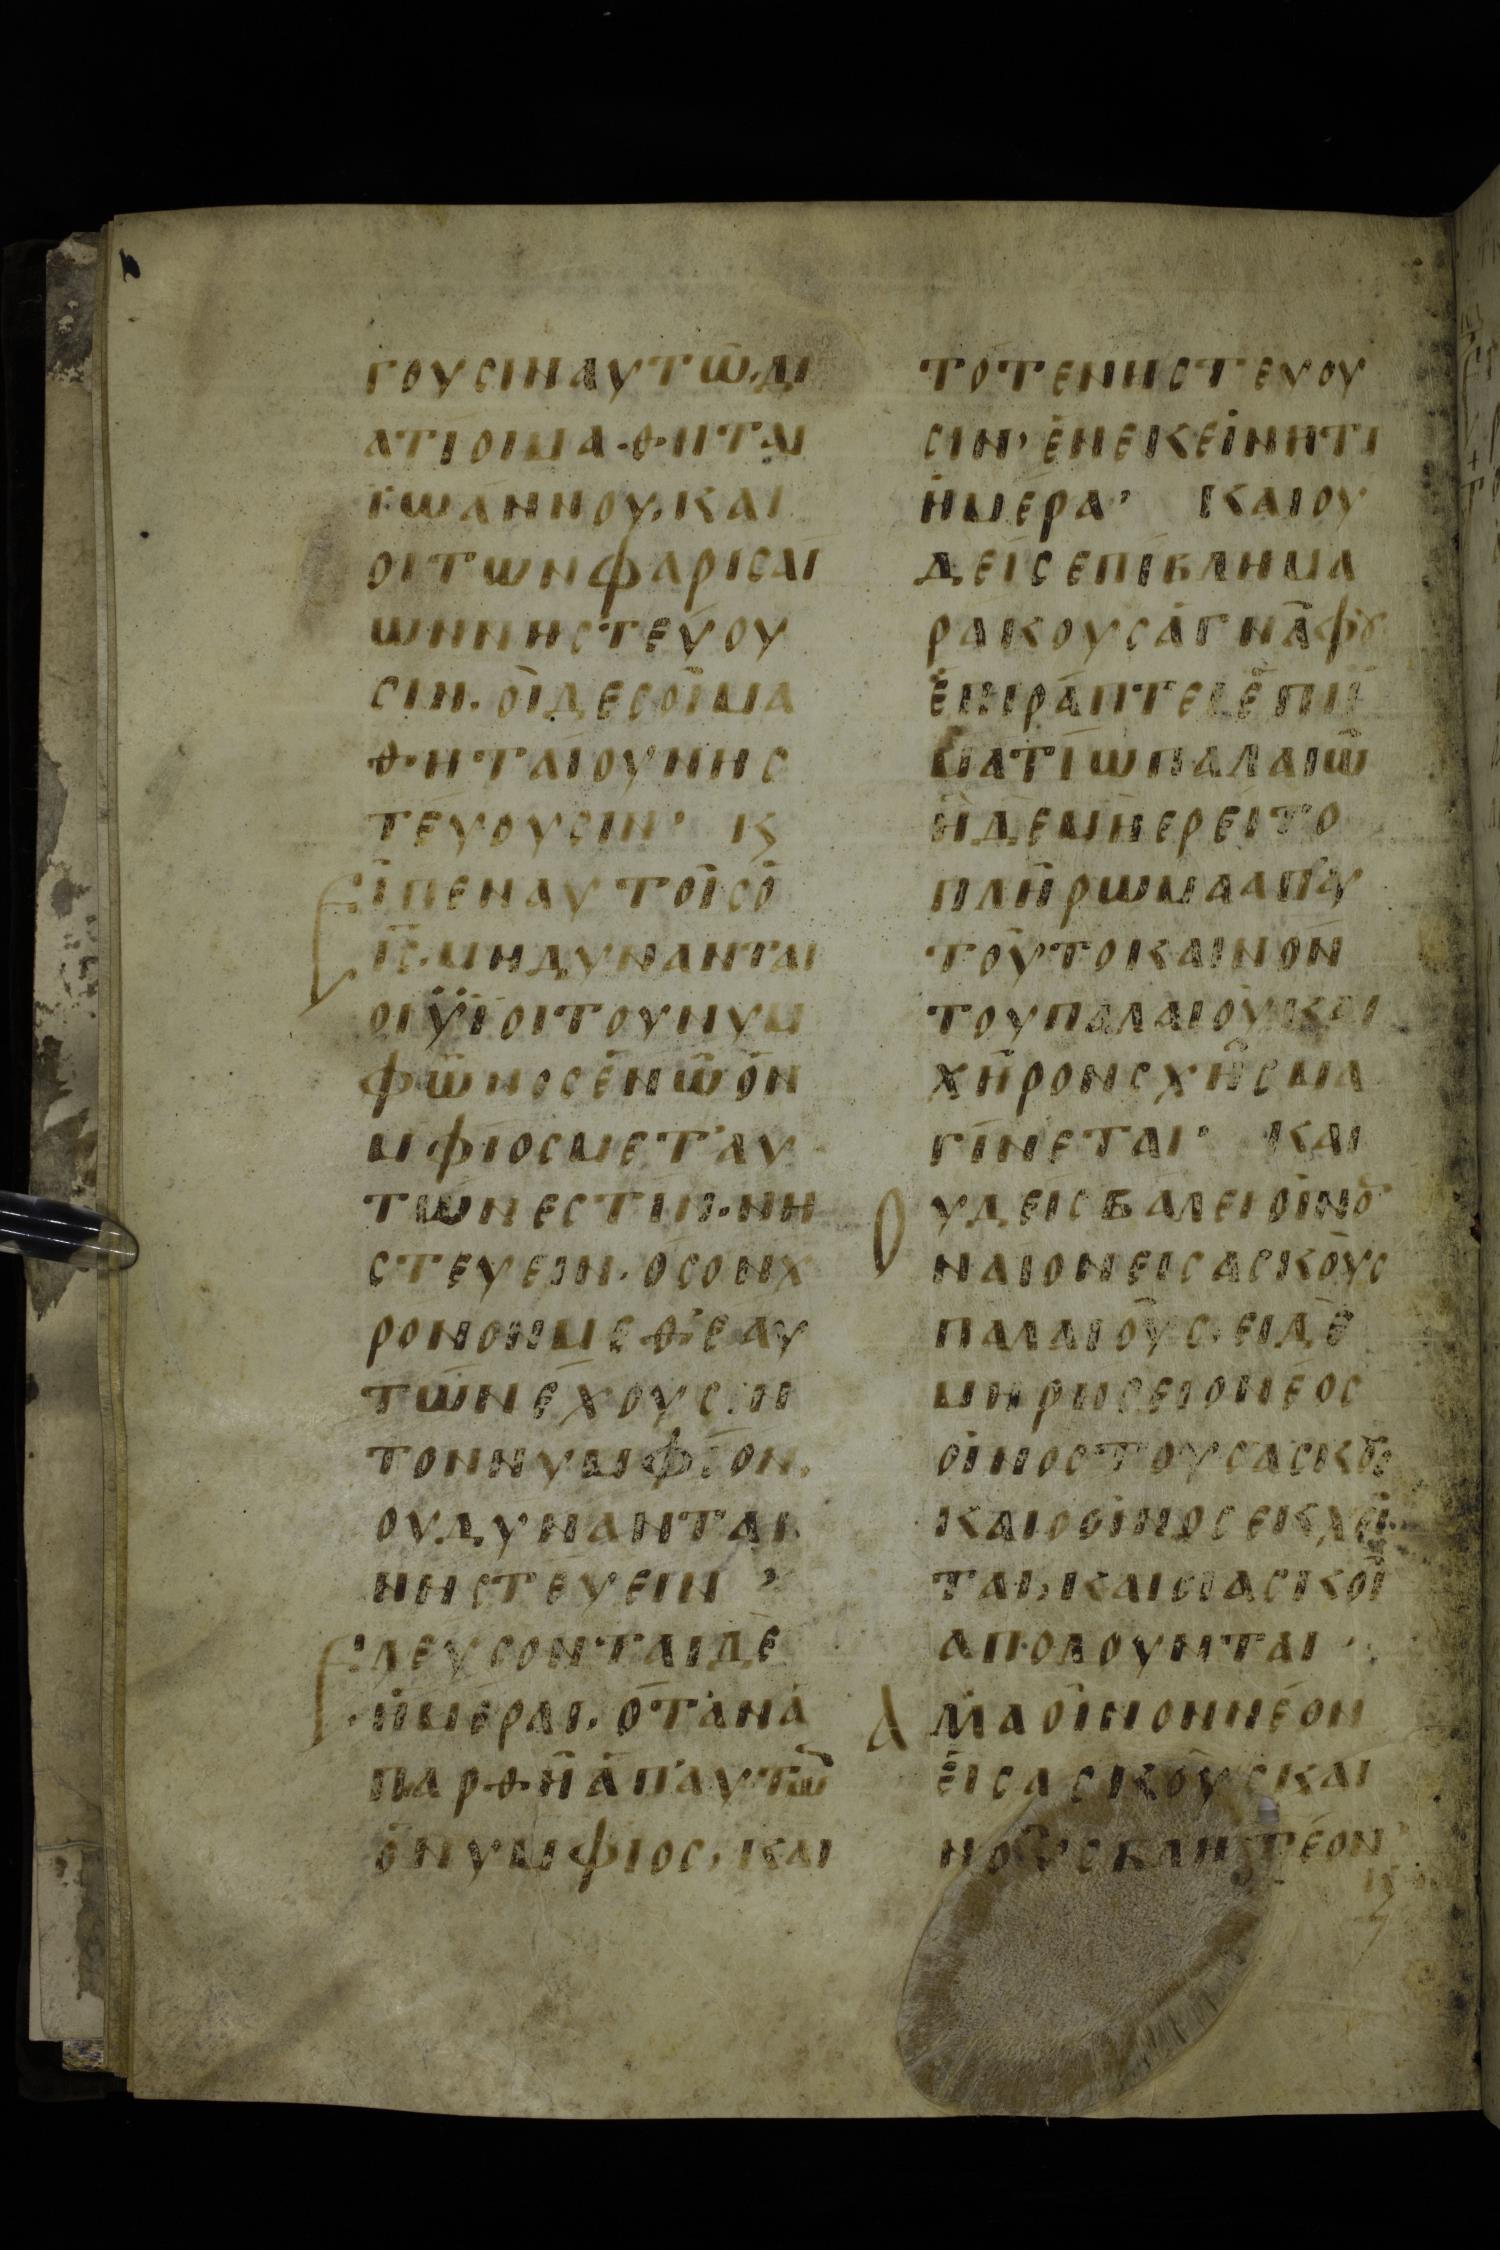 ΓΟΥΣΙΝΑΥΤῶ·ΔΙ
ΑΤΙΟΙΜΑΘΗΤΑΙ
ΪΩΑΝΝΟΥ, ΚΑΙ
ΟΙΤΩΝΦΑΡΙΣΑΙ
ΩΝΝΗΣΤΕΥΟΥ
ΣΙΝ. ΟΙΔΕΣΟΙΜΑ
ΘΗΤΑΙΟΥΝΗΣ
ΤΕΥΟΥΣΙΝ· Κ
ΕΙΠΕΝΑΥΤΟΙΣΟ
ΙΣ̅·ΜΗΔΥΝΑΝΤΑΙ
ΟΙΫΪΟΙΤΟΥΝΥΜ
ΦΩΝΟΣΕΝΩΟΝ
ΜΦΙΟΣΜΕΤ'ΑΥ
ΤΩΝΕΣΤΙΝ·ΝΗ
ΣΤΕΥΕΙΝ·ΟΣΟΝΧ
ΡΟΝΟΝΜΕΘ'ΕΑΥ
ΤΩΝΕΧΟΥΣΙΝ
ΤΟΝΝΥΜΦΙΟΝ.
ΟΥΔΥΝΑΝΤΑΙ
ΝΗΣΤΕΥΕΙΝ ,
ΕΛΕΥΣΟΝΤΑΙΔΕ
ΗΜΕΡΑΙ. ΟΤΑΝΑ
ΠΑΡΘΗΑΠ'ΑΥΤῶ
ΟΝΥΜΦΙΟΣ, ΚΑΙ
ΤΟΤΕΝΗΣΤΕΥΟΥ
ΣΙΝ, ΕΝΕΚΕΙΝΗΤΙ
ΗΜΕΡΑ, ΚΑΙΟΥ
ΔΕΙΣΕΠΙΒΛΗΜΑ
ΡΑΚΟΥΣΑΓΝΑΦȢ
ΕΠΙΡΑΠΤΕΙΕΠΙΪ
ΜΑΤΙΩΠΑΛΑΙΩ
ΗΔΕΜΗΕΡΕΙΤΟ
ΠΛΗΡΩΜΑΑΠ'ΑΥ
ΤΟΥΤΟΚΑΙΝΟΝ
ΤΟΥΠΑΛΑΙΟΥΚΑΙ
ΧΗΡΟΝΣΧΗΣΜΑ
ΓΙΝΕΤΑΙ· ΚΑΙ
ΟΥΔΕΙΣΒΑΛΕΙΟΙΝΟ
ΝΑΙΟΝΕΙΣΑΣΚΟΥΣ
ΠΑΛΑΙΟΥΣ·ΕΙΔΕ
ΜΗΡΗΣΕΙΟΝΕΟΣ
ΟΙΝΟΣΤΟΥΣΑΣΚȢΣ
ΚΑΙΟΟΙΝΟΣΕΚΧΕΙ
ΤΑΙ, ΚΑΙΟΙΑΣΚΟΙ
ΑΠΟΛΟΥΝΤΑΙ ·
ΑΜΑΟΙΝΟΝΝΕΟΝ
ΕΙΣΑΣΚΟΥΣΚΑΙ
ΝΟΥΣΒΛΗΤΕΟΝ